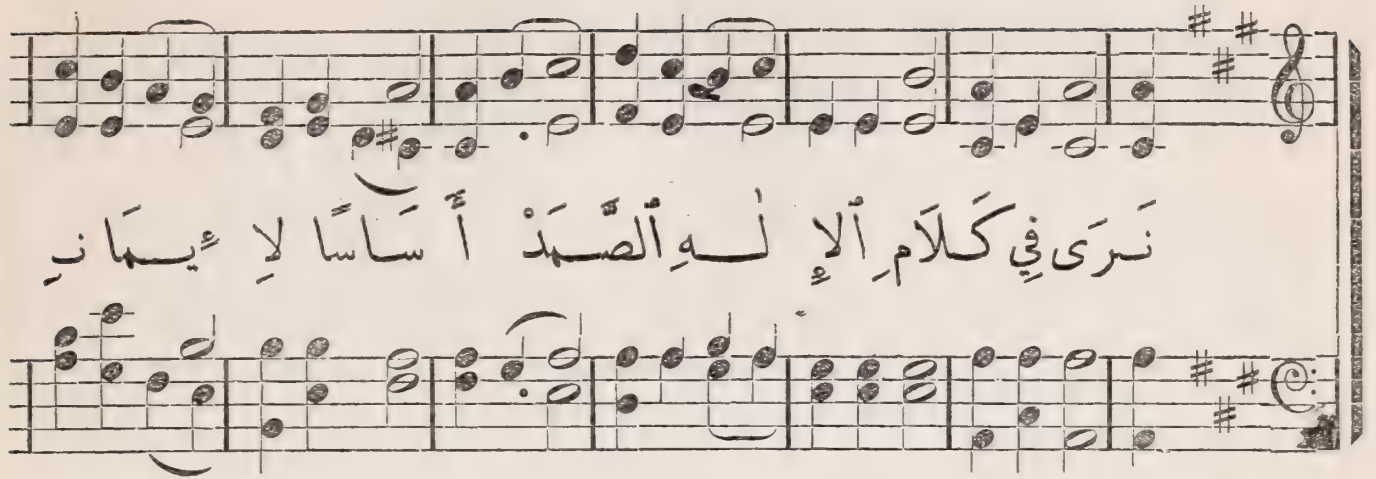 نَرَى فِي كَلَامِ ٱلإِ لٰهِ ٱلصَّمَدْ أَ سَاسًا لِإِ يمَانِ